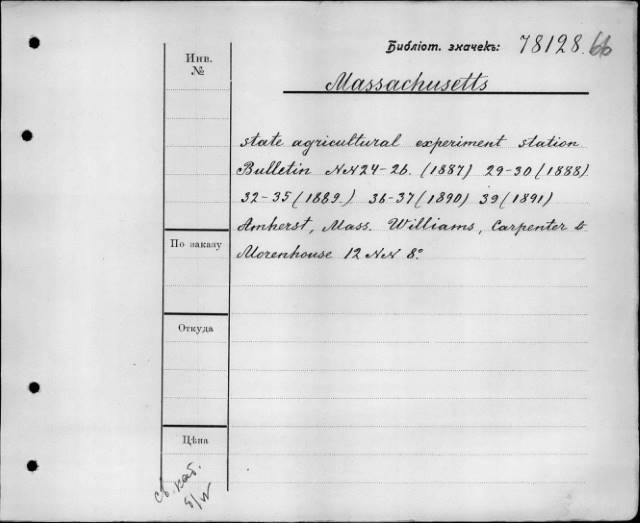 Библіот. значекъ: 78128.bb
Инв. №
Massachusetts
state agricultural experiment station
Bulletin NN 24-26. (1887) 29-30 (1888).
32-35 (1889.) 36-37 (1890) 39 (1891)
Amherst, Mass. Williams, Carpenter &
Morenhouse 12 NN 8°.
По заказу
Откуда
Цѣна
съ. каб.